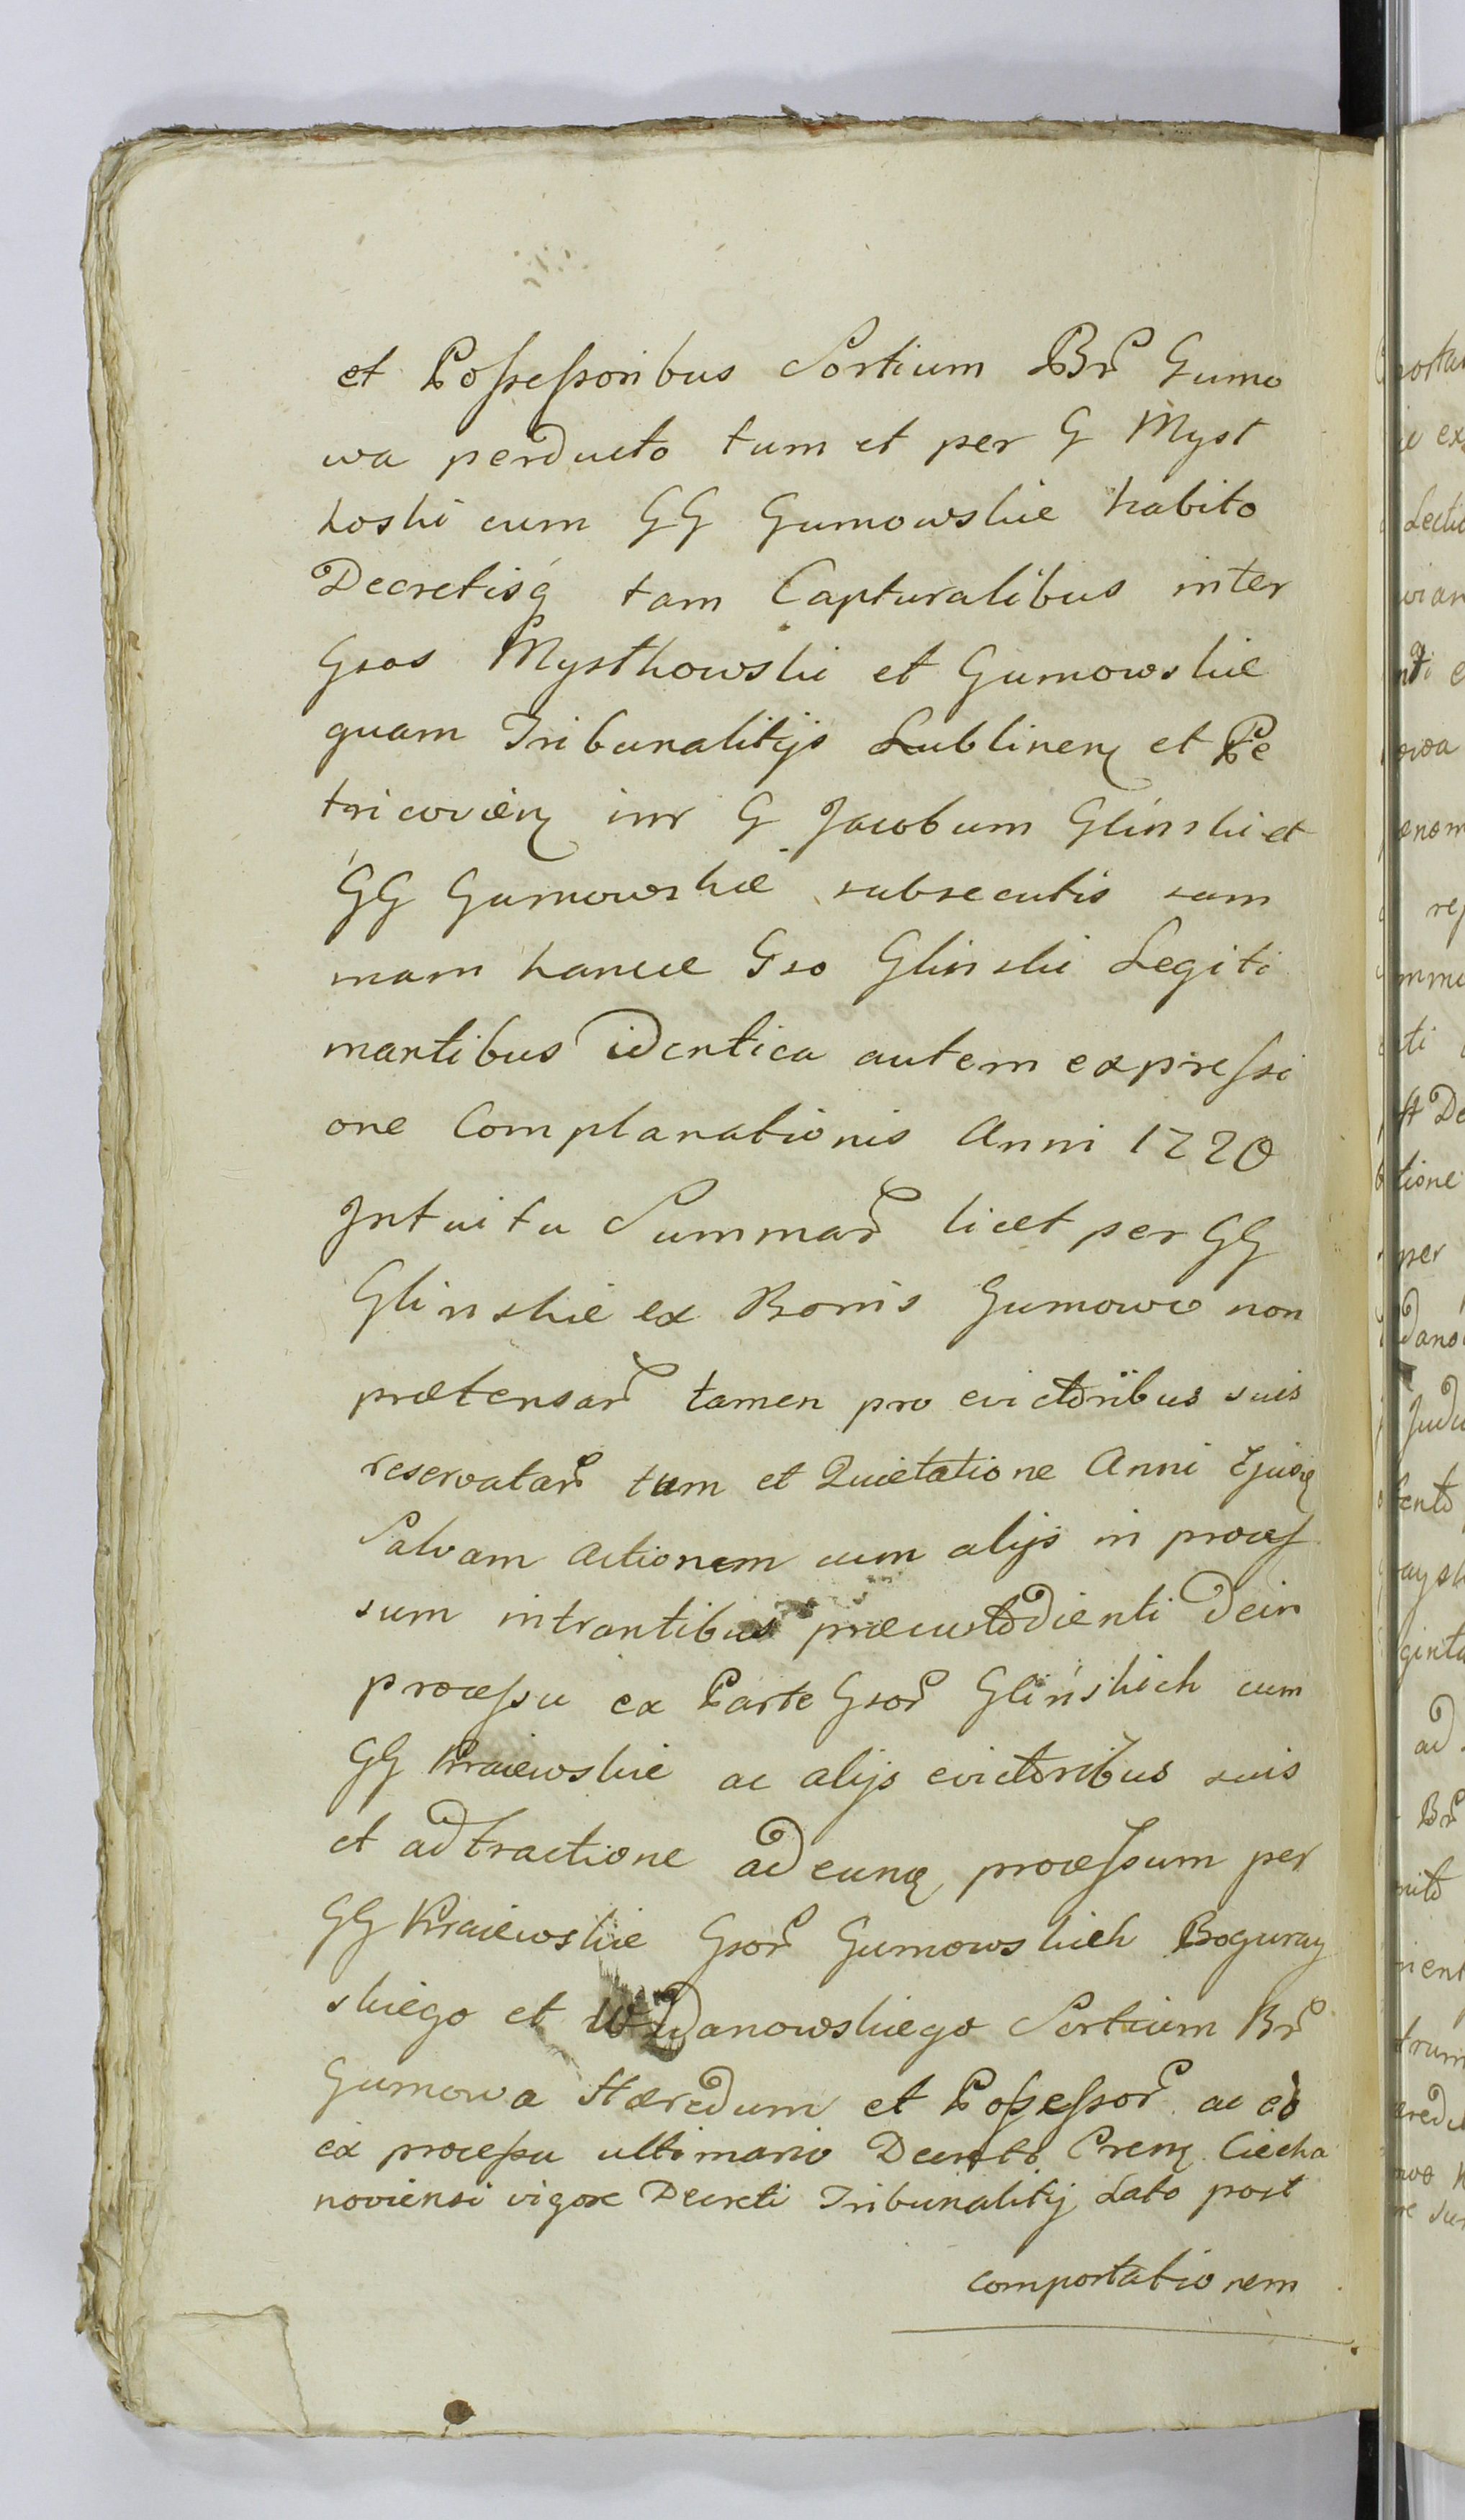 et Possessoribus Sortium Brũ Gumo
wa perducto tum et per G Myst
koski cum GG Gumowskie habito
Decretisq́ tam Capturalibus inter
Gsos Mystkowski et Gumowskie
quam Tribunalitijs Lublineñ et Pe
tricovieñ intr G Jacobum Glinski et
GG Gumowskie subsecutis sum
mam hancce Gso Glinski Legiti
mantibus identica autem expressi
one Complanationis Anni 1720
Intuitu Summarũ licet per GG
Glinskie ex Bonis Gumowo non
prætensarũ tamen pro evictoribus suis
reservatarũ tum et Quietatione Anni Ejusq
Salvam Actionem cum alijs in proces
sum intrantibus præcustodienti Dein
processu ex Parte Gsorũ Glińskich cum
GG Kraiewskie ac alijs evictoribus suis
et adtractione ad eunq processum per
GG Kraiewskie Gsorũ Gumowskich Boguray
skiego et Wdanowskiego Sortium Brũ
Gumowa Hæredum et Possessorũ ac eò
ex processu ultimario Decreto Crenĩ Ciecha
noviensi vigore Decreti Tribunalitij Lato post
comportationem